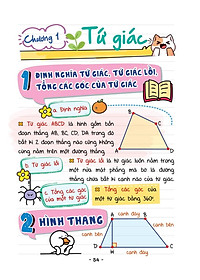 Chương 1
Tứ giác
1 ĐỊNH NGHĨA TỨ GIÁC, TỨ GIÁC LỒI,
TỔNG CÁC GÓC CỦA TỨ GIÁC
a. Định nghĩa
Tứ giác ABCD là hình gồm bốn
đoạn thẳng AB, BC, CD, DA trong đó
bất kì 2 đoạn thẳng nào cũng không
cùng nằm trên một đường thẳng.
A
B
D
C
b. Tứ giác lồi
Tứ giác lồi là tứ giác luôn nằm trong
một nửa mặt phẳng mà bờ là đường
thẳng chứa bất kì cạnh nào của tứ giác.
c. Tổng các góc
của một tứ giác
Tổng các góc của
một tứ giác bằng 360°.
2 HÌNH THANG
A
cạnh đáy
B
cạnh bên
cạnh bên
D
H
C
cạnh đáy
- 84 -